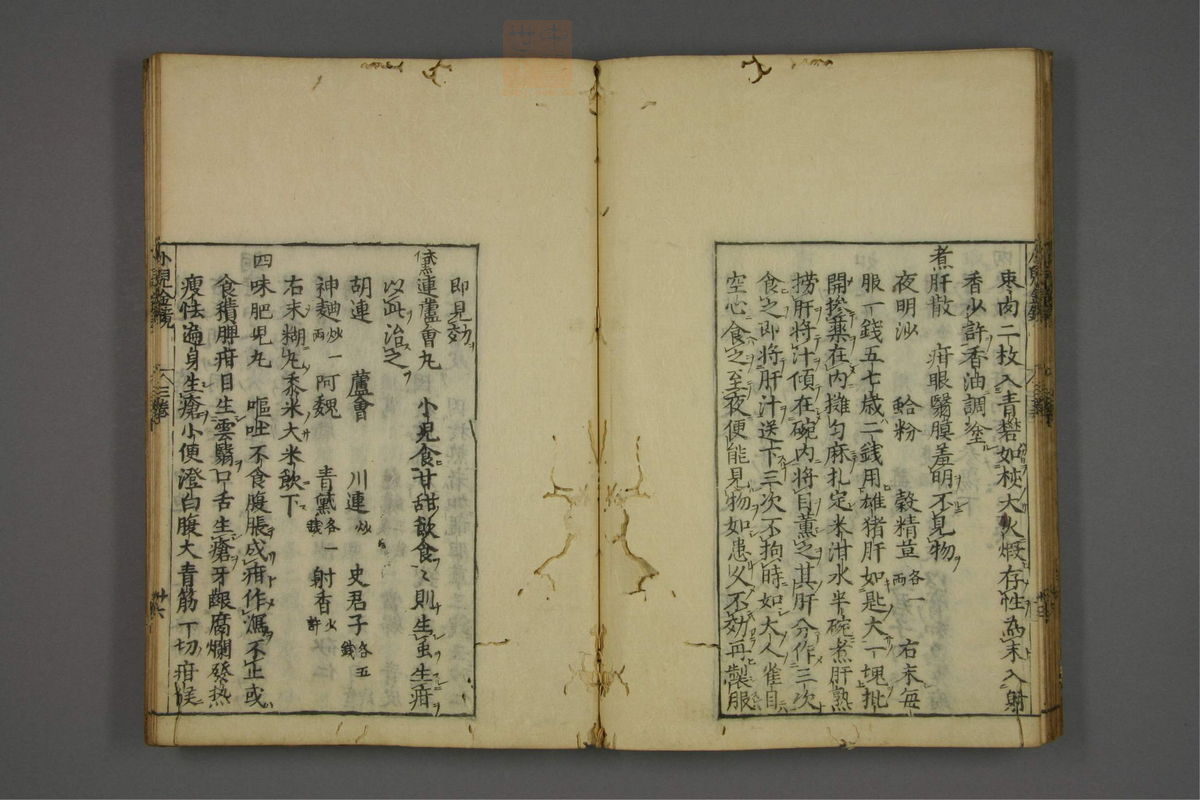 棗肉二枚入青礬如秋大火煆存性為末入射
香少許香油調塗
煮肝散　疳眼翳膜羞明不見物
夜明沙　蛤粉　穀精草各一両　右末毎
服一錢五七歳二錢用雄猪肝如匙大一塊批
開摻藥在内攤匀麻扎定米泔水半碗煮肝熟
撈肝將汁傾在碗内將目薫之其肝分作三次
食之即將肝汁送下三次不拘時如大人雀目
空心食之至夜便能見物如患久不効再製服
即見効
黛連蘆會丸　小児食甘甜飲食〻則生虽生疳
以此治之
胡連　蘆會　川連炒　史君子各五錢
神麯炒一両　阿魏　青黛各一錢　射香少許
右末糊丸黍米大米飲下
四味肥児丸　嘔吐不食腹脹成疳作瀉不止或
食積脾疳目生雲翳口舌生瘡牙齦腐爛發熱
瘦怯遍身生瘡小便澄白腹大青筋一切疳候
小児金鏡　三巻　廿六